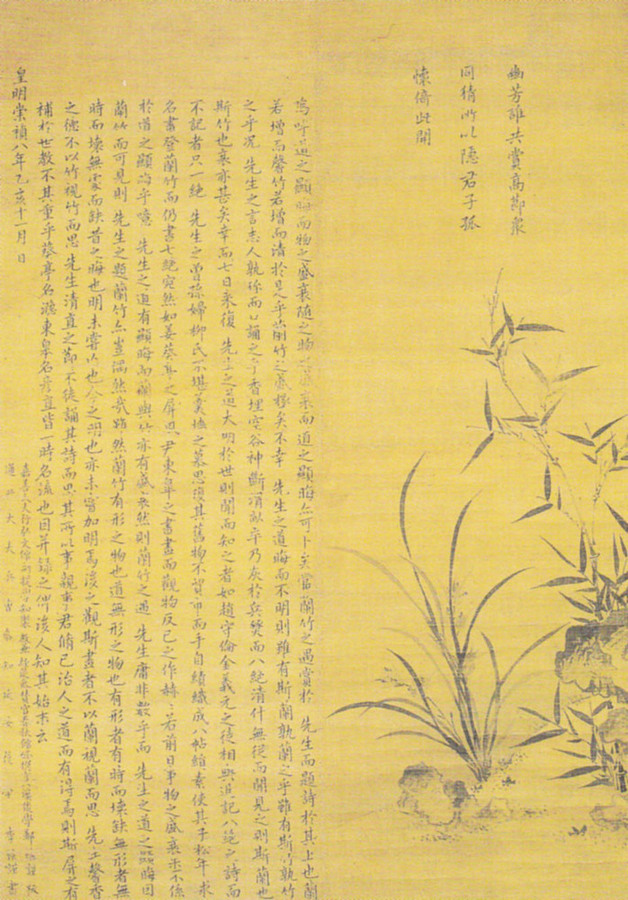 幽芳誰共賞高節衆
同猜所以隱君子孤
懷倚此開
嗚呼道之顯晦而物之盛衰隨之物之盛衰而道之顯晦亦可卜矣當蘭竹之遇賞於 先生而題詩於其上也蘭
若增而馨竹若增而清於是乎蘭竹之盛極矣不幸 先生之道晦而不明則雖有斯蘭孰蘭之乎雖有斯竹孰竹
之乎況 先生之言志人孰珎而口誦之乎香埋空谷神斷畝卒乃灰於兵燹而八絶清什無從而聞見之則斯蘭也
斯竹也衰亦甚矣幸而七日來復 先生之道大明於世則聞而知之者如趙守倫金義元之徒相與追記八絶之詩而
不記者只一絶 先生之曾孫婦柳氏不堪羹墻之慕思復其舊物不手自績織成八帖綃素使其子松年求
名畫登蘭竹而仍書七絶宛然如姜葵亭之屏尹東皐之書畫而觀物反己之作赫〻若前日事物之盛衰不係
於道之顯晦乎噫 先生之道有顯晦而蘭與竹亦有盛衰然則蘭竹之遇 先生庸非數乎而 先生之道之顯晦因
蘭竹而可見則 先生之題蘭竹亦豈偶然哉雖然蘭竹有形之物也道無形之物也有形者有時而壞缺無形者無
時而壞無處而缺昔之晦也明未嘗亡也今之明也亦未嘗加明焉後之觀斯畫者不以蘭視蘭而思 先生馨香
之德不以竹視竹而思 先生清直之節不徒誦其詩而思其所以事親事君脩己治人之道而有得焉則斯屏之有
補於世教不其重乎葵亭名東皐名彥直皆一時名流也因并錄之俾後人知其始末云
皇明崇禎八年乙亥十一月 日
通政大夫 李 謹書